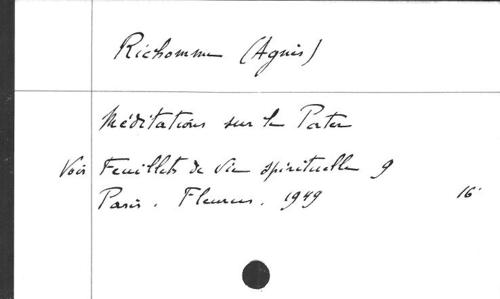 Richomme (Agnès)
Méditations sur le Pater
Voir Feuillets de vie spirituelle 9
Paris. Fleurus. 1949 16°